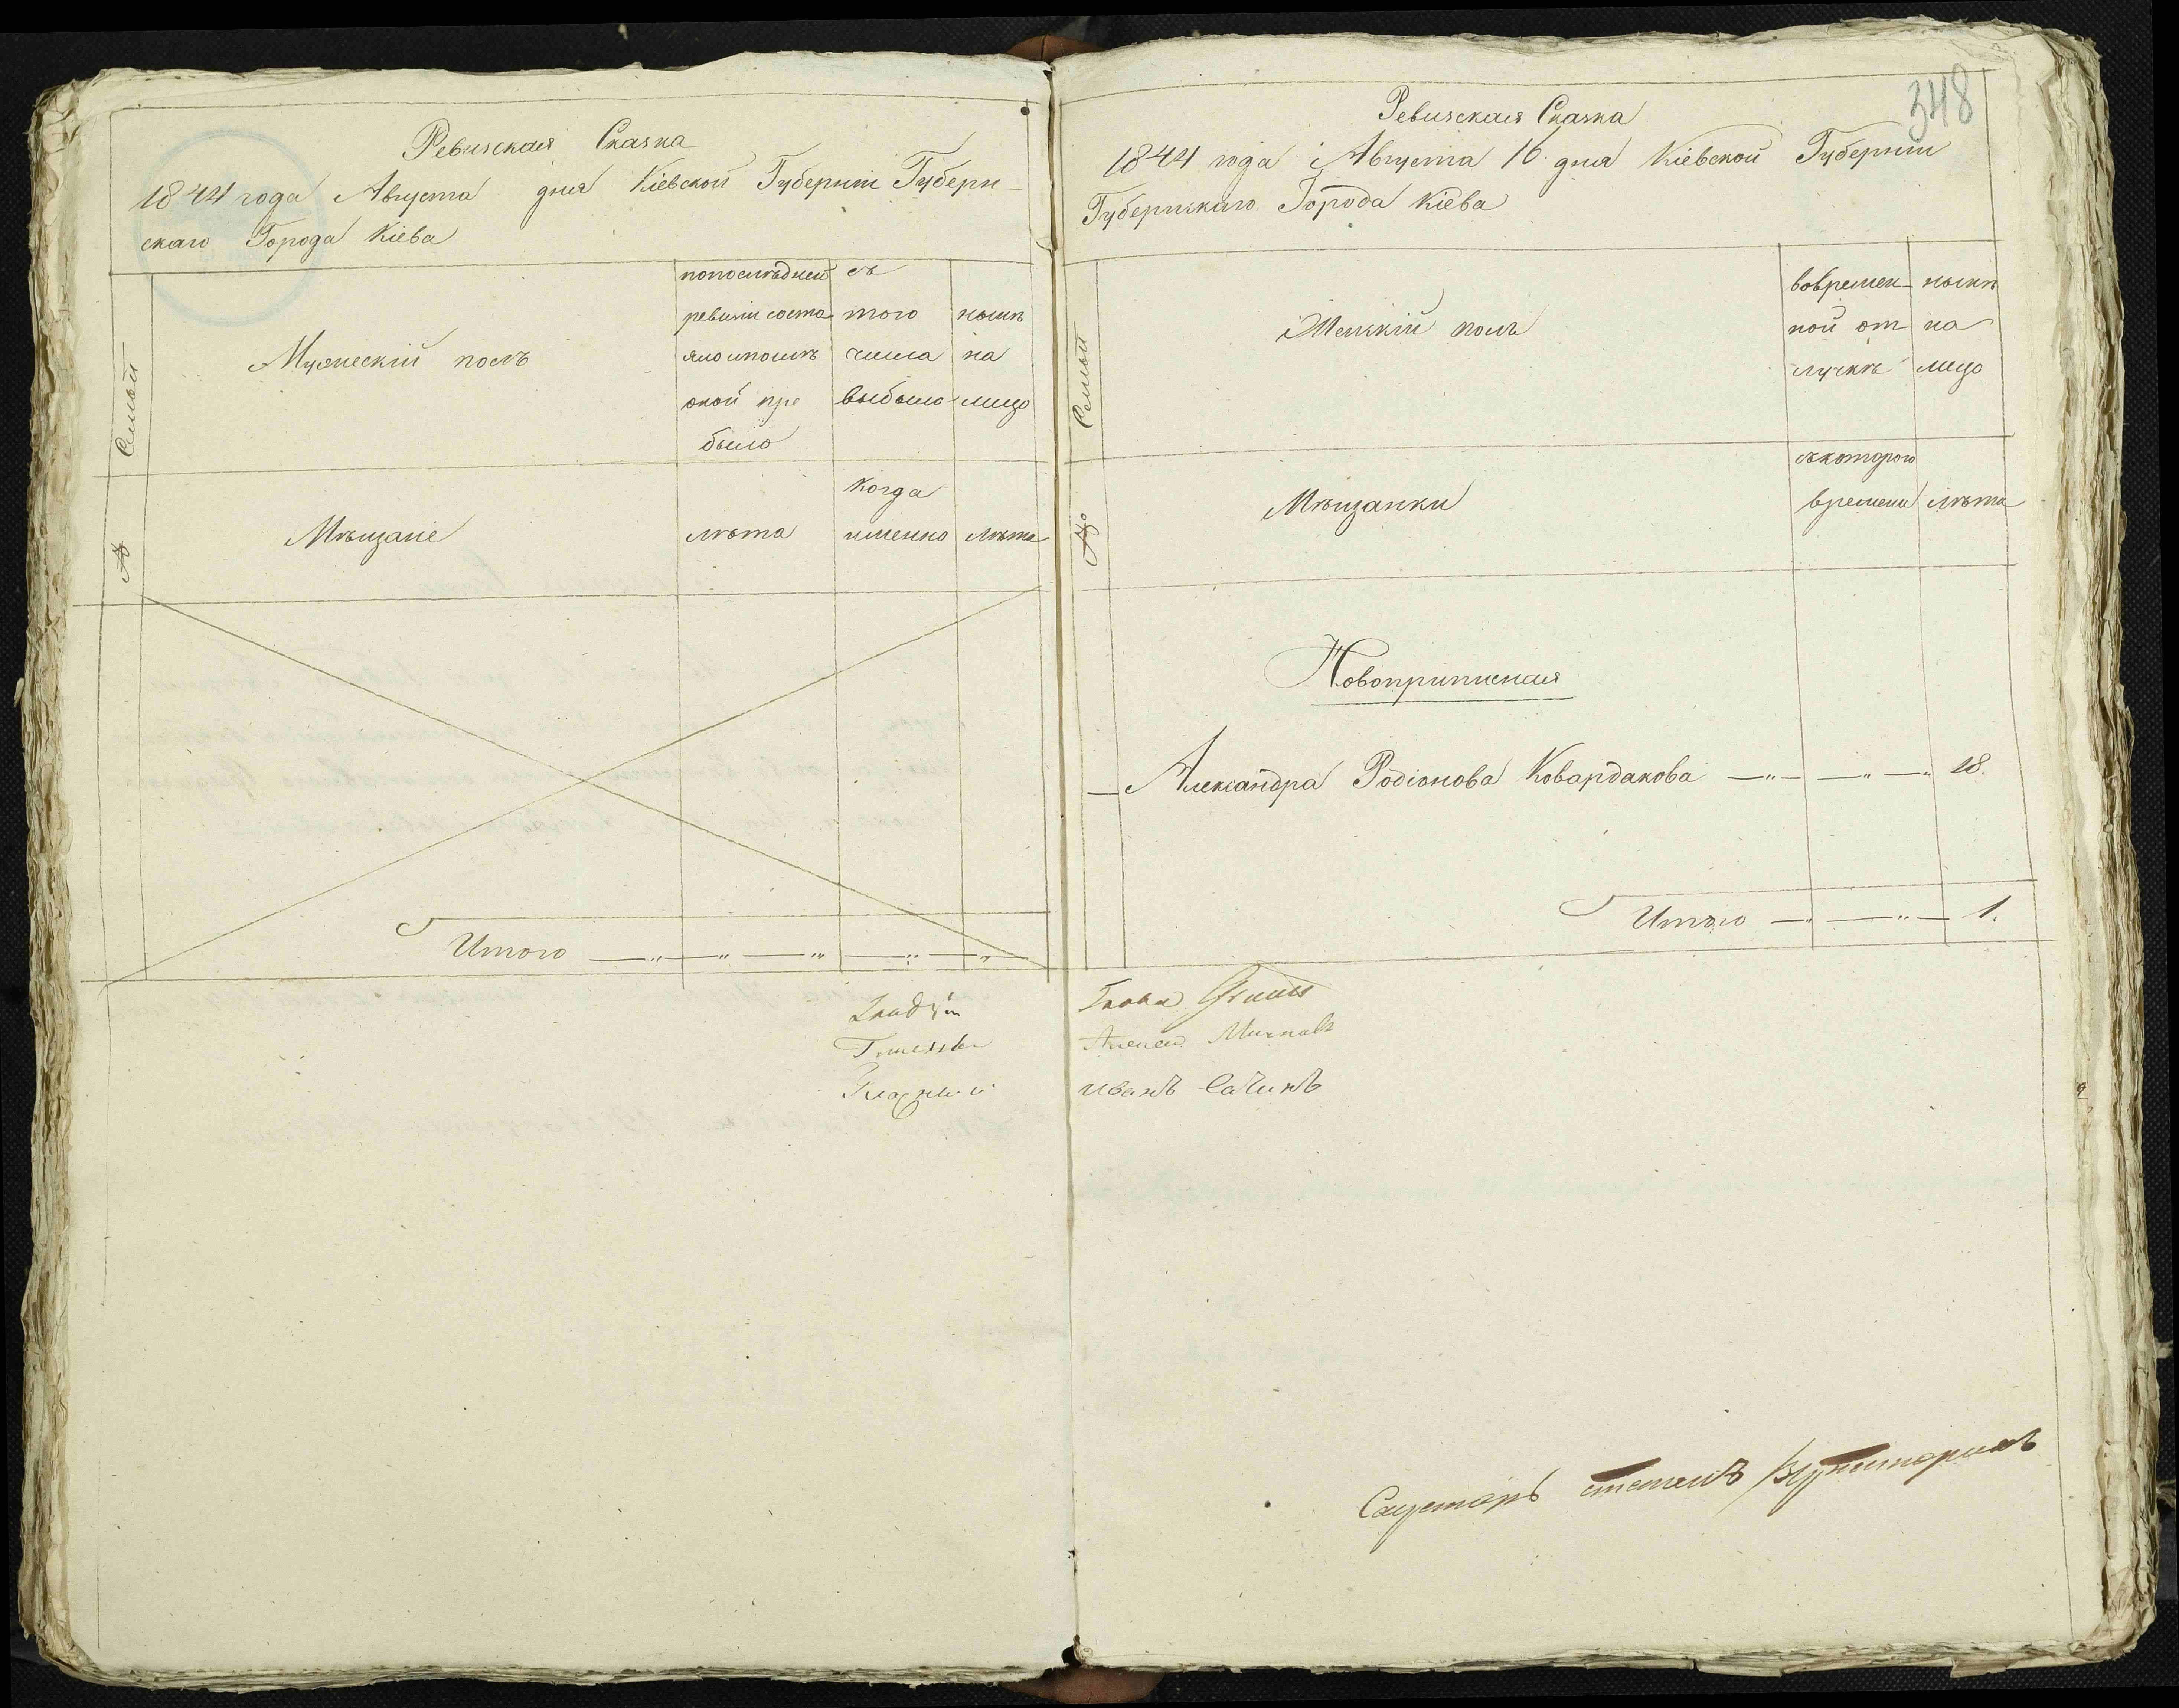 Ревизская Сказка
1844 года Августа дня Кіевской Губерніи Губерн-
скаго Города Кіева
Семьи
Мужескій полъ
попослѣдней
ревизіи состо
яло ипослѣ
оной при
было
съ
того
числа
выбыло
нынѣ
на
лицо
№
Мѣщане
лѣта
когда
именно
лѣта
Итого
Гласный
348
Ревизская Сказка
1844 года Августа 16 дня Кіевской Губерніи
Губернскаго Города Кіева
Семьи
Женскій полъ
вовремен-
ной от
лучкѣ
нынѣ
на
лицо
№
Мѣщанки
съкотораго
времени
лѣта
Новоприписная
Александра Родіонова Ковардакова 18.
Итого 1.
Иванъ